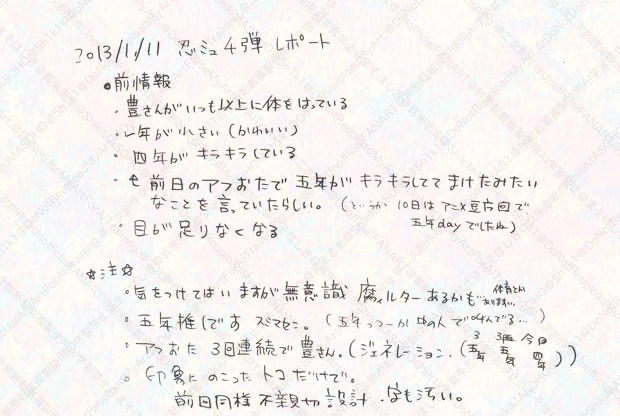 2013/1/11 忍ミュ4弾 レポート
●前情報
・豊さんがいつも以上に体をはっている
・一年が小さい(かわいい)
・四年がキラキラしている
・前日のアフおたで五年がキラキラしててまけたみたい
なことを言っていたらしい。(というか 10日はアニメ豆腐回で
五年dayでしたね)
・目が足りなくなる
☆注☆
・気をつけてはいますが無意識腐ィルターあるかも
・五年推しです スマセン。(五年っつーか中の人で叫んでる…)
・アフおた 3回連続で豊さん。(ジェネレーション.(3 五年 五年 今日 四年))
・印象にのこったトコだけで。
前回同様不親切設計.字も汚い。